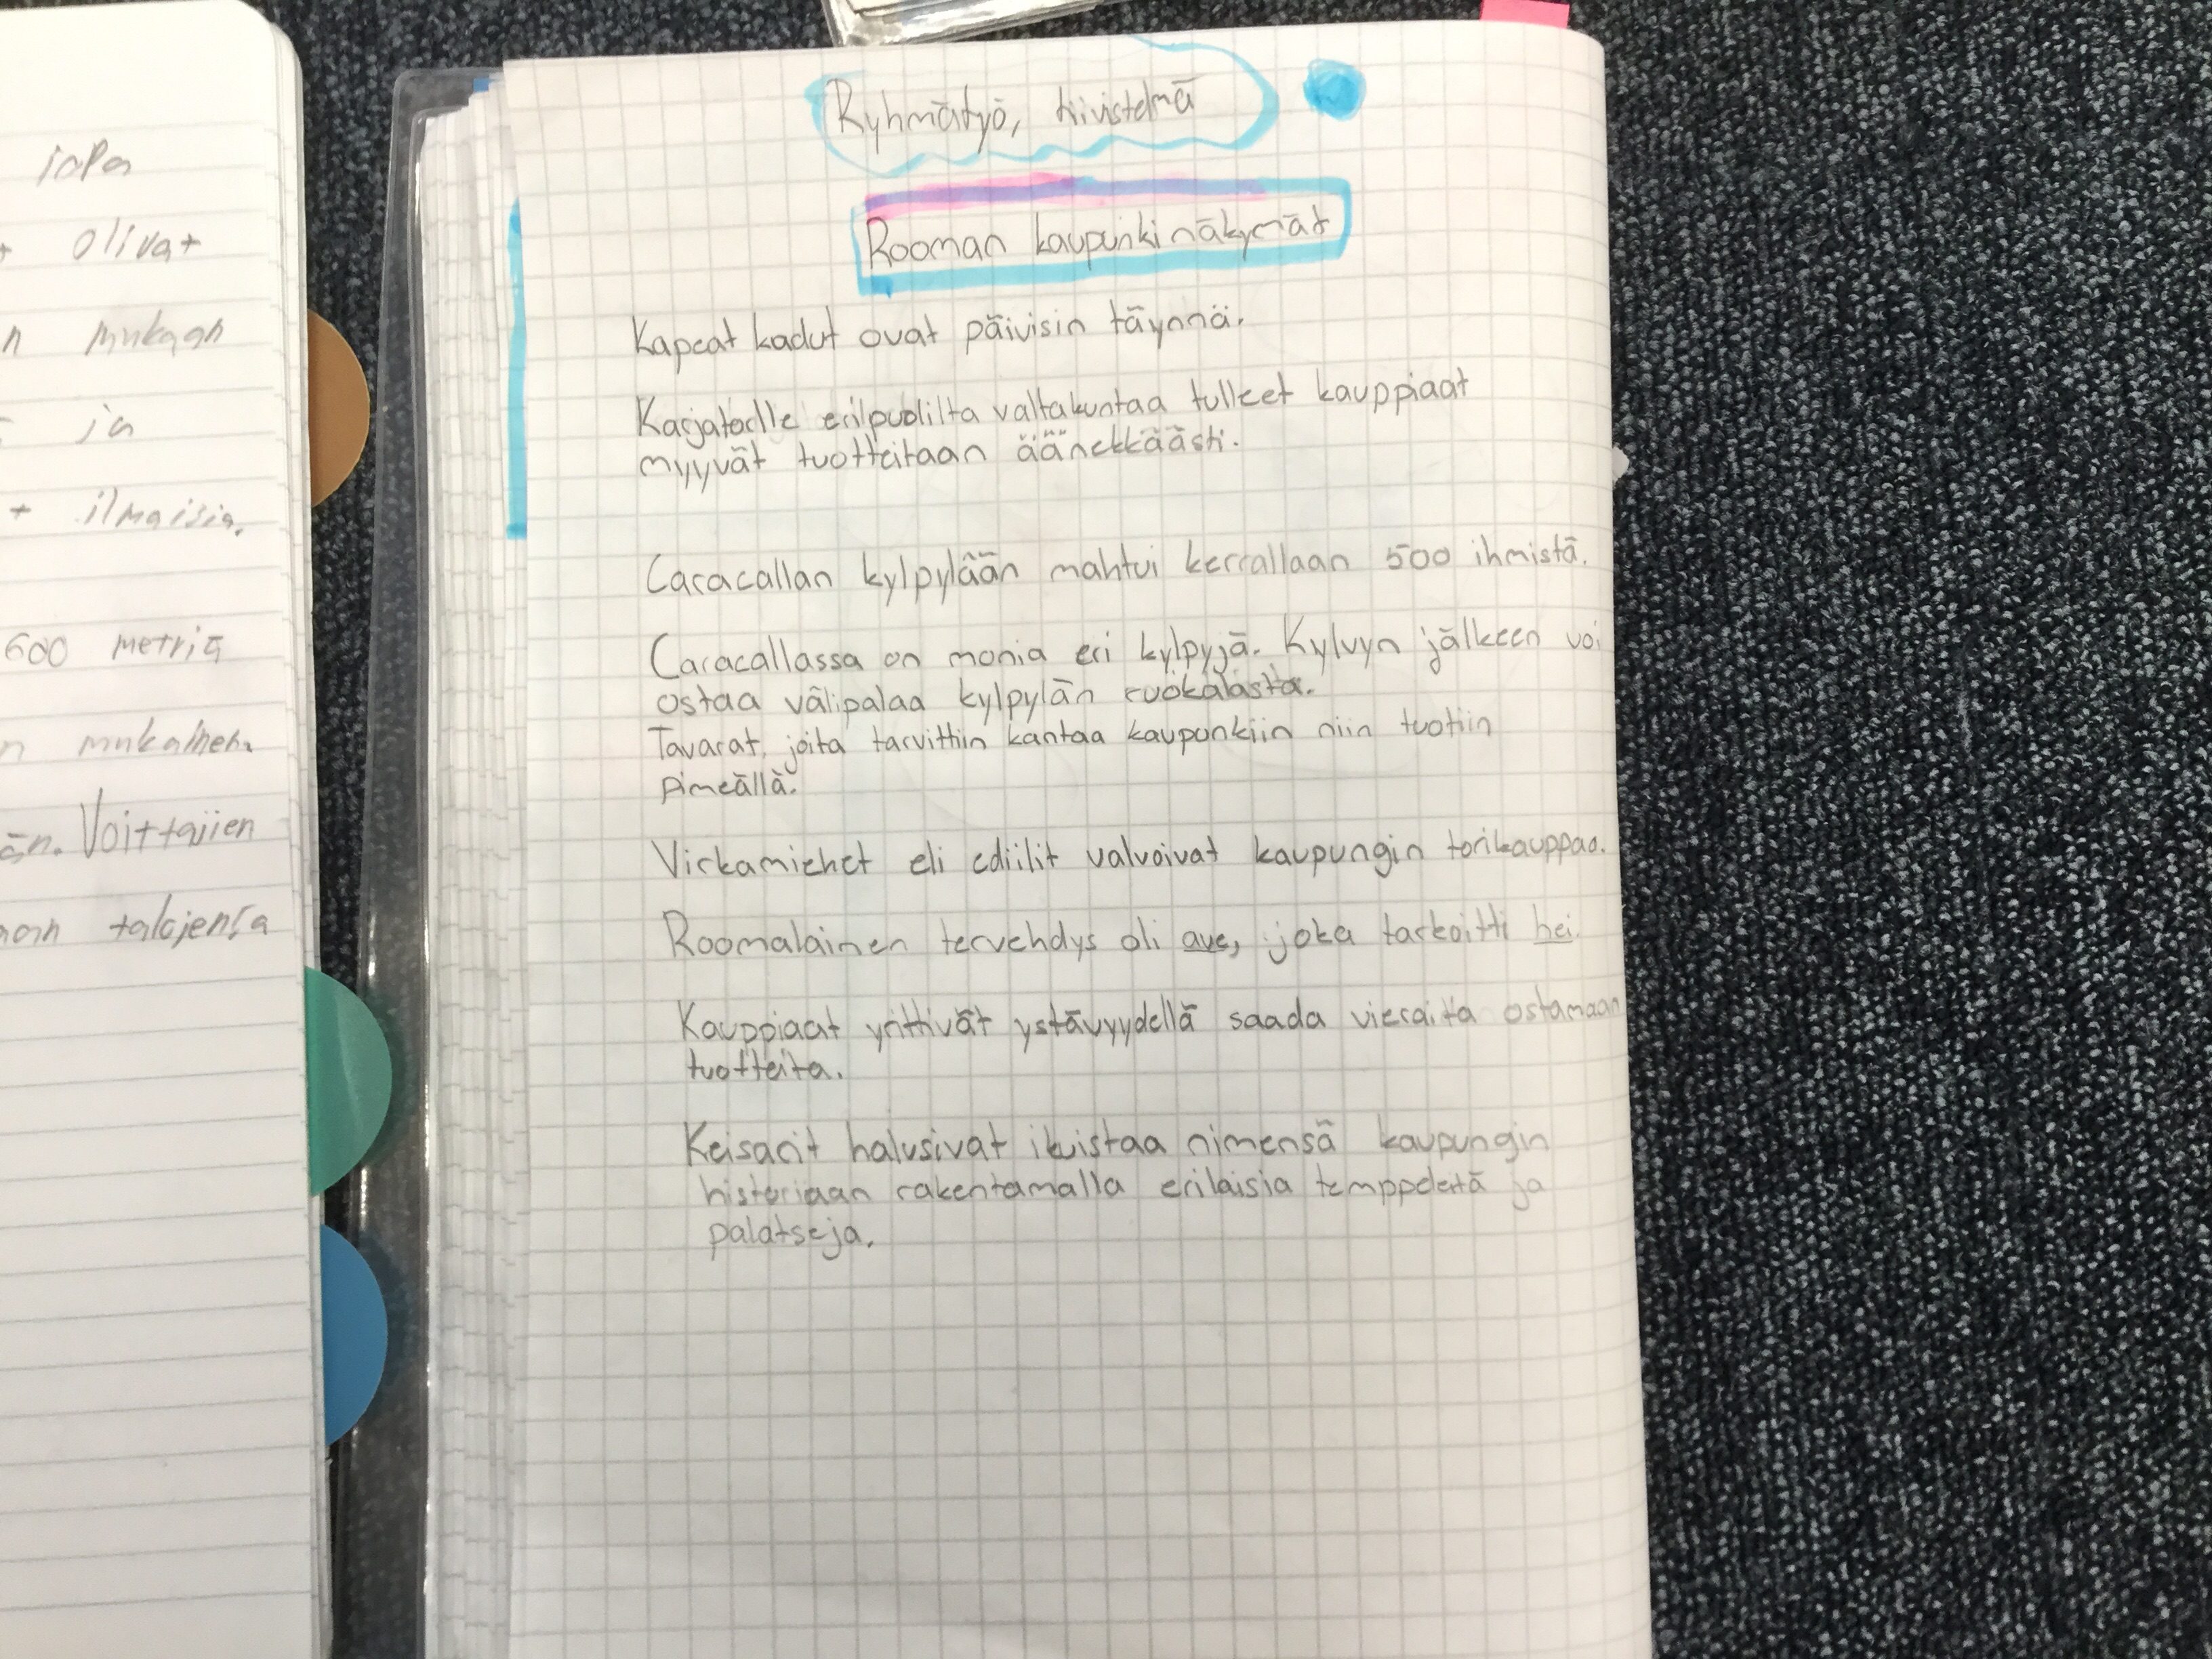 iopa
olivat
n mukaan
ja
+ ilmaisia.
600 metriä
n mukaiheh.
än. Voittajien
talojensa
Ryhmätyö, tiivistelmä
Rooman kaupunkinäkymät
Kapeat kadut ovat päivisin täynnä.
Karjatorlle eripuolilta valtakuntaa tulleet kauppiaat
myyvät tuotteitaan äänekkäästi.
Caracallan kylpylään mahtui kerrallaan 500 ihmistä.
Caracallassa on monia eri kylpyjä. Kylvyn jälkeen voi
ostaa välipalaa kylpylän ruokalasta.
Tavarat, joita tarvittiin kantaa kaupunkiin niin tuotiin
pimeällä.
Virkamiehet eli ediilit valvoivat kaupungin torikauppaa.
Roomalainen tervehdys oli ave, joka tarkoitti hei.
Kauppiaat yrittivät ystävyydellä saada vieraita ostamaan
tuotteita.
Keisarit halusivat ikuistaa nimensä kaupungin
historiaan rakentamalla erilaisia temppeleitä ja
palatseja.